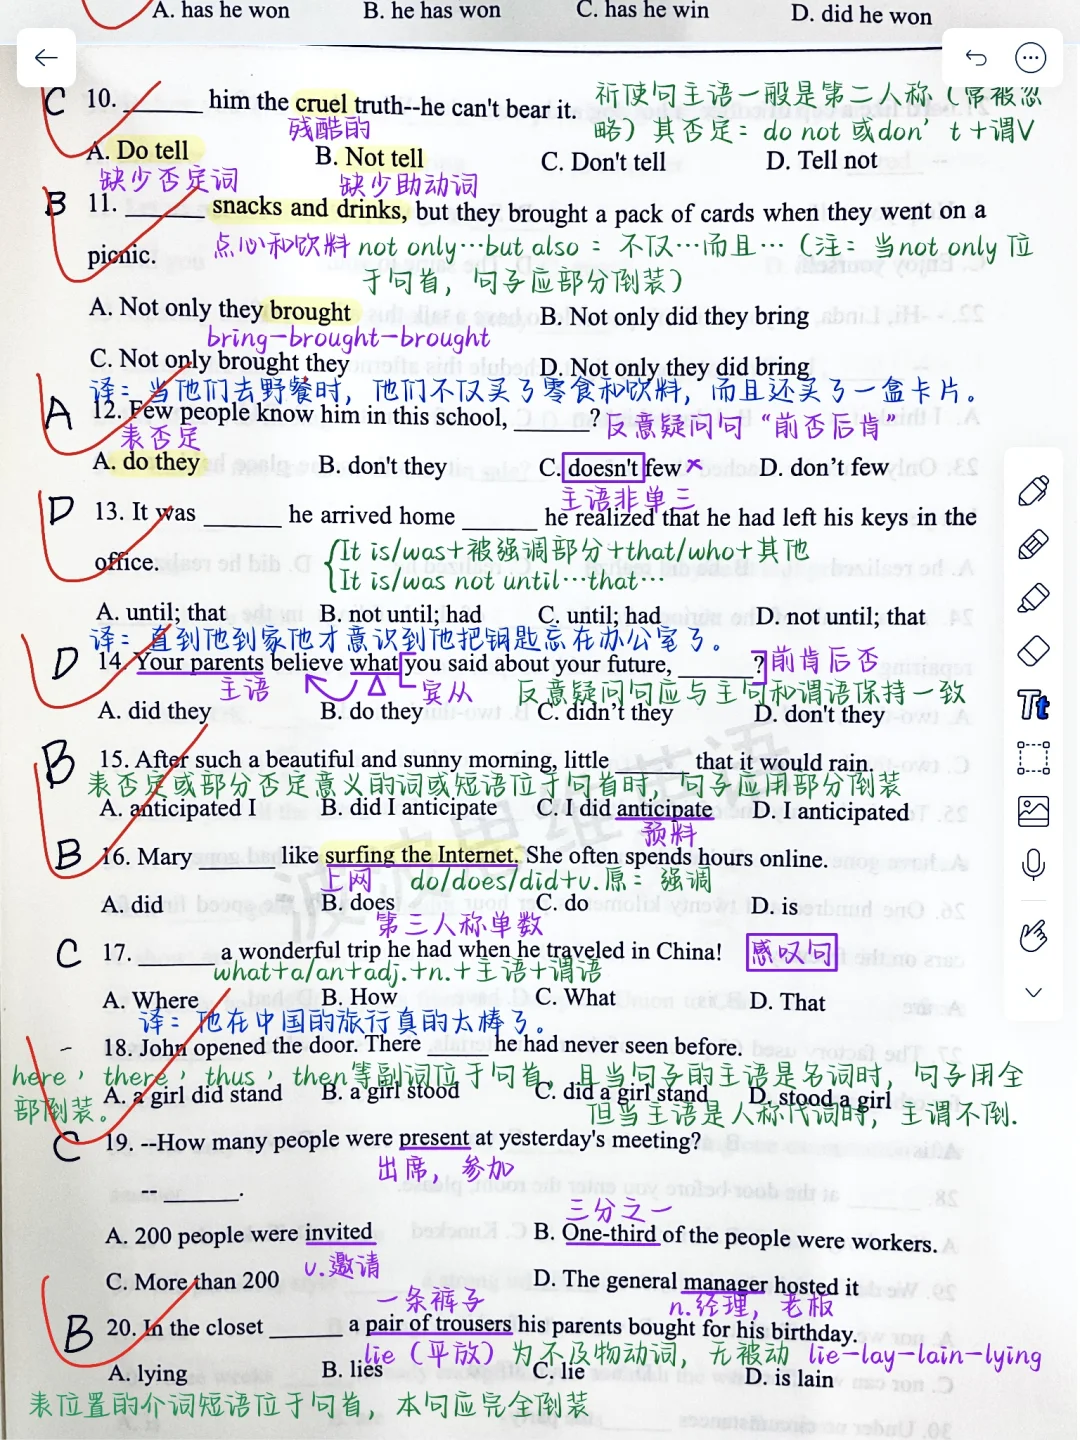 A. has he won B. he has won C. has he win D. did he won
C 10. ______ him the cruel truth--he can't bear it. 祈使句主语一般是第二人称(常被忽
残酷的 略)其否定: do not 或don't+谓V
A. Do tell B. Not tell C. Don't tell D. Tell not
缺少否定词 缺少助动词
B 11. ______ snacks and drinks, but they brought a pack of cards when they went on a
picnic. 点心和饮料 not only…but also: 不仅…而且…(注: 当not only 位
于句首, 句子应部分倒装)
A. Not only they brought B. Not only did they bring
bring-brought-brought
C. Not only brought they D. Not only they did bring
译: 当他们去野餐时, 他们不仅买了零食和饮料, 而且还买了一盒卡片。
A 12. Few people know him in this school, ______? 反意疑问句 “前否后肯”
表否定
A. do they B. don't they C. doesn't few × D. don’t few
主语非单三
D 13. It was ______ he arrived home ______ he realized that he had left his keys in the
office. It is/was+被强调部分+that/who+其他
It is/was not until…that…
A. until; that B. not until; had C. until; had D. not until; that
译: 直到他到家他才意识到他把钥匙忘在办公室了。
D 14. Your parents believe what you said about your future, ______? 前肯后否
主语 宾从 反意疑问句应与主句和谓语保持一致
A. did they B. do they C. didn’t they D. don't they
B 15. After such a beautiful and sunny morning, little ______ that it would rain.
表否定或部分否定意义的词或短语位于句首时, 句子应用部分倒装
A. anticipated I B. did I anticipate C. I did anticipate D. I anticipated
预料
B 16. Mary ______ like surfing the Internet. She often spends hours online.
上网 do/does/did+v.原: 强调
A. did B. does C. do D. is
第三人称单数
C 17. ______ a wonderful trip he had when he traveled in China! 感叹句
what+a/an+adj.+n.+主语+谓语
A. Where B. How C. What D. That
译: 他在中国的旅行真的太棒了。
- 18. John opened the door. There ______ he had never seen before.
here, there, thus, then等副词位于句首, 且当句子的主语是名词时, 句子用全
部倒装。 A. a girl did stand B. a girl stood C. did a girl stand D. stood a girl
但当主语是人称代词时, 主谓不倒.
C 19. --How many people were present at yesterday's meeting?
出席, 参加
-- ______.
三分之一
A. 200 people were invited B. One-third of the people were workers.
v.邀请
C. More than 200 D. The general manager hosted it
一条裤子 n.经理, 老板
B 20. In the closet ______ a pair of trousers his parents bought for his birthday.
lie (平放) 为不及物动词, 无被动 lie-lay-lain-lying
A. lying B. lies C. lie D. is lain
表位置的介词短语位于句首, 本句应完全倒装